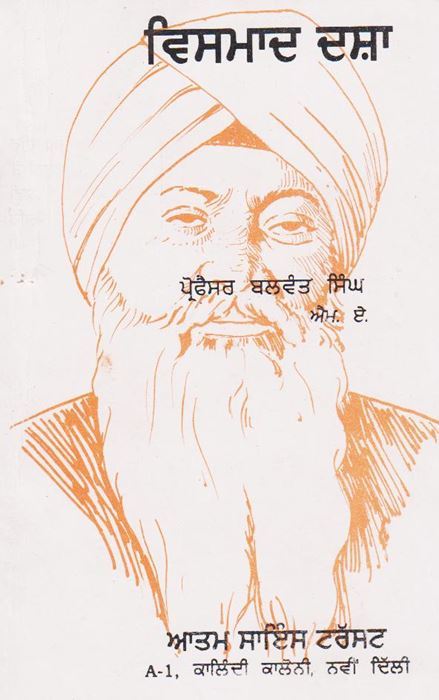 ਵਿਸਮਾਦ ਦਸ਼ਾ
ਪ੍ਰੋਫੈਸਰ ਬਲਵੰਤ ਸਿੰਘ
ਐਮ. ਏ.
ਆਤਮ ਸਾਇੰਸ ਟਰੱਸਟ
A-1, ਕਾਲਿੰਦੀ ਕਾਲੋਨੀ, ਨਵੀਂ ਦਿੱਲੀ